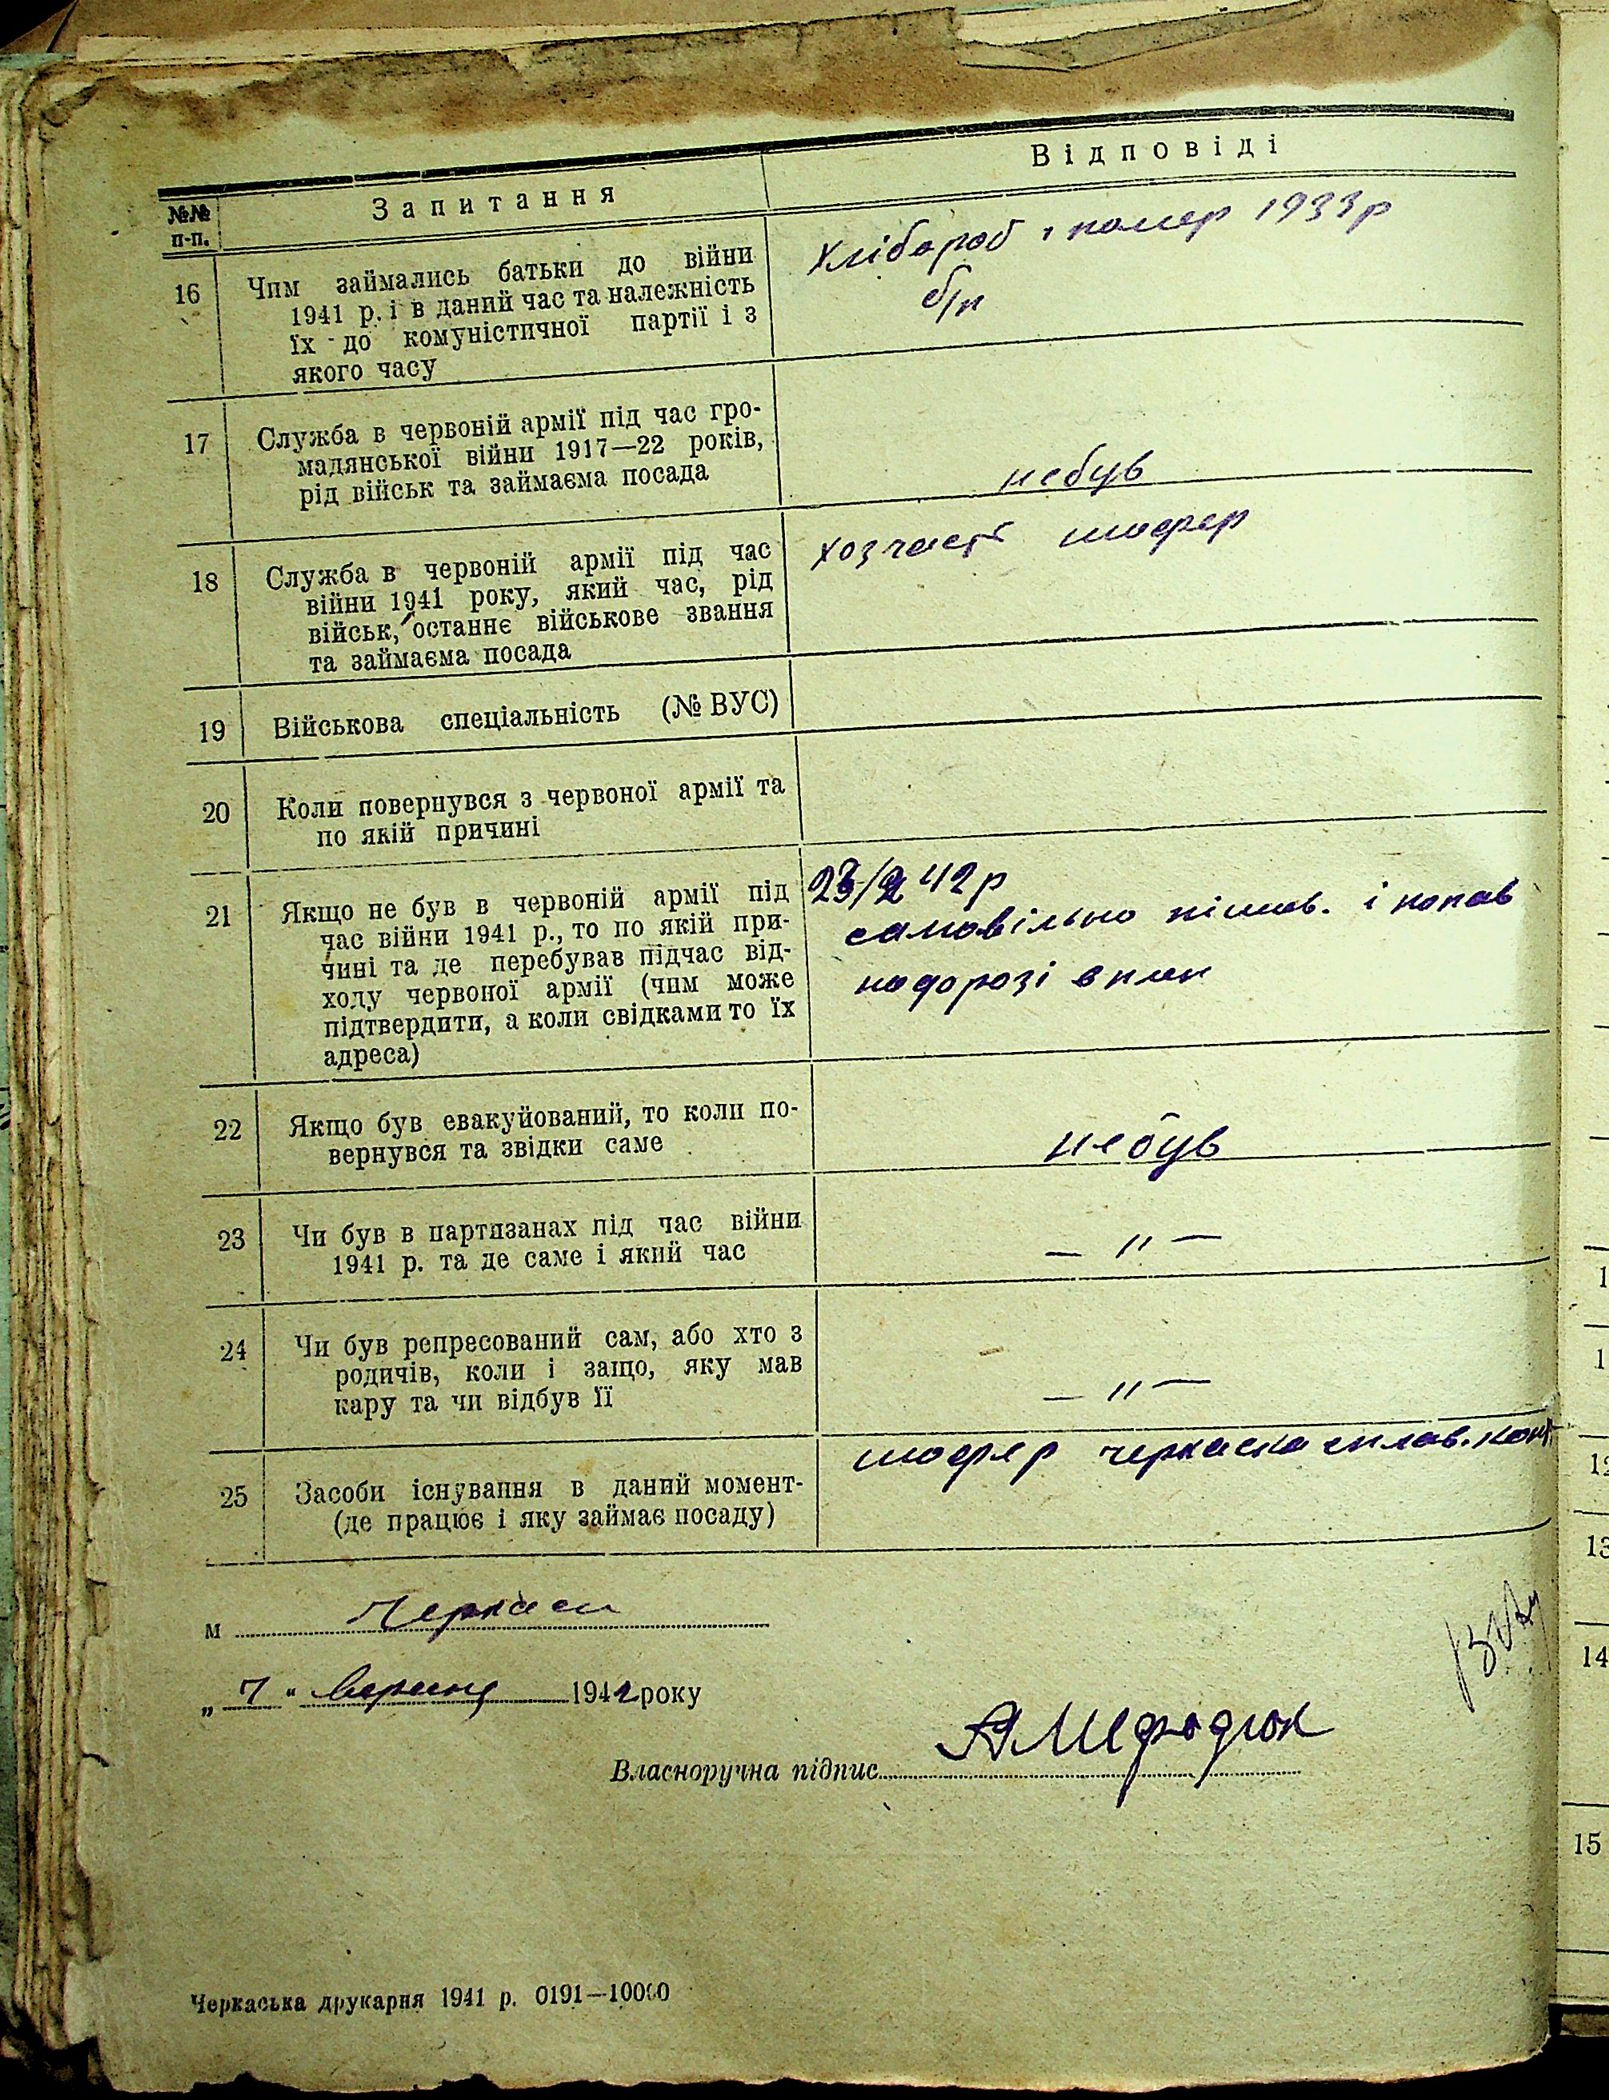 №№ п-п.
Запитання
Відповіді
16
Чим займались батьки до війни
1941 р. і в даний час та належність
їх до комуністичної партії і з
якого часу
хлібороб, помер 1933р
б/п
17
Служба в червоній армії під час гро-
мадянської війни 1917—22 років,
рід військ та займаєма посада
небув
18
Служба в червоній армії під час
війни 1941 року, який час, рід
військ, останнє військове звання
та займаєма посада
хозчасть шофер
19
Військова спеціальність (№ ВУС)
20
Коли повернувся з червоної армії та
по якій причині
21
Якщо не був в червоній армії під
час війни 1941 р., то по якій при-
чині та де перебував підчас від-
ходу червоної армії (чим може
підтвердити, а коли свідками то їх
адреса)
42р
самовільно пішов. і попав
надорозі в плен
22
Якщо був евакуйований, то коли по-
вернувся та звідки саме
небув
23
Чи був в партизанах під час війни
1941 р. та де саме і який час
— " —
24
Чи був репресований сам, або хто з
родичів, коли і защо, яку мав
кару та чи відбув її
— " —
25
Засоби існування в даний момент-
(де працює і яку займає посаду)
шофер черкаска сплав. конт.
м Черкаси
„ 7 " вересня 1942 року
Власноручна підпис АМефодюк
Черкаська друкарня 1941 р. 0191—10000
1
1
12
13
14
15